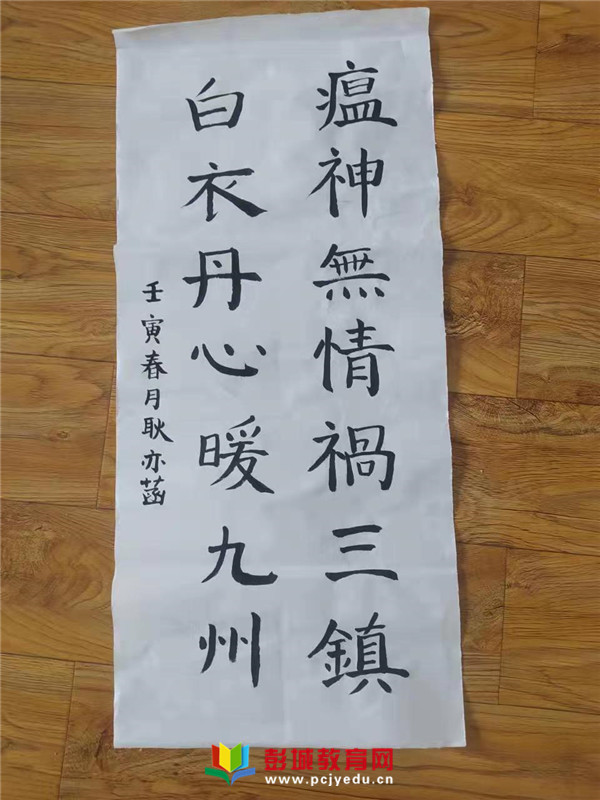 瘟神無情禍三鎮
白衣丹心暖九州
壬寅春月耿亦菡
彭城教育网
www.pcjyedu.cn